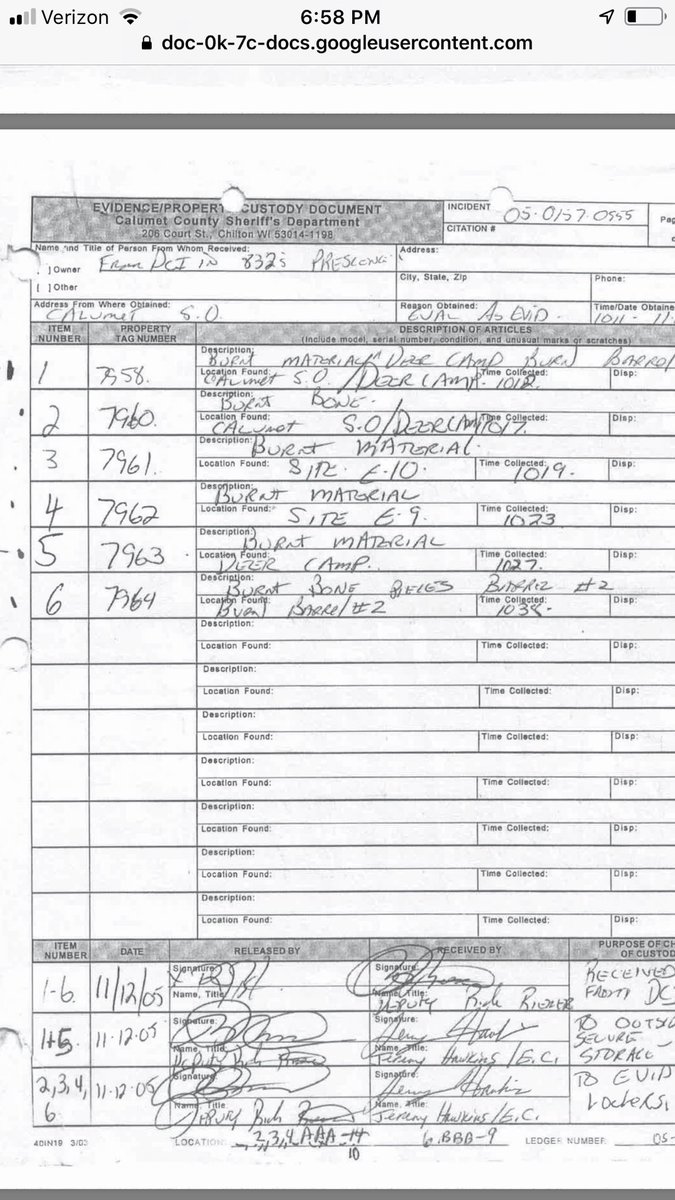 Verizon 6:58 PM
doc-0k-7c-docs.googleusercontent.com
EVIDENCE/PROPERTY CUSTODY DOCUMENT
Calumet County Sheriff's Department
206 Court St., Chilton WI 53014-1198
INCIDENT 05-0157-0955
CITATION #
Pag
Name and Title of Person From Whom Received:
[ ] Owner From DCI IN 832's PRESCENC
[ ] Other
Address:
City, State, Zip
Phone:
Address From Where Obtained:
CALUMET S.O.
Reason Obtained:
EVAL AS EVID.
Time/Date Obtaine
1011- 11-
ITEM NUNBER
PROPERTY TAG NUMBER
DESCRIPTION OF ARTICLES
(Include model, serial number, condition, and unusual marks or scratches)
1 7958.
Description: BURNT MATERIAL" DEER CAMP BURN BARREL
Location Found: CALUMET S.O. / DEER CAMP. Time Collected: 1012. Disp:
2 7960.
Description: BURNT BONE.
Location Found: CALUMET S.O/DEER CAMP Time Collected: 1017. Disp:
3 7961.
Description: BURNT MATERIAL.
Location Found: SITE. E-10. Time Collected: 1019. Disp:
4 7962
Description: BURNT MATERIAL
Location Found: SITE E-9. Time Collected: 1023 Disp:
5 7963
Description: BURNT MATERIAL
Location Found: DEER CAMP. Time Collected: 1027. Disp:
6 7964
Description: BURNT BONE PIECES BARREL #2
Location Found: Burn Barrel #2 Time Collected: 1038- Disp:
Description:
Location Found: Time Collected: Disp:
Description:
Location Found: Time Collected: Disp:
Description:
Location Found: Time Collected: Disp:
Description:
Location Found: Time Collected: Disp:
Description:
Location Found: Time Collected: Disp:
Description:
Location Found: Time Collected: Disp:
Description:
Location Found: Time Collected: Disp:
ITEM NUMBER
DATE
RELEASED BY
RECEIVED BY
PURPOSE OF CH
OF CUSTOD
1-6. 11/12/05
Signature:
Name, Title:
Signature:
Name, Title: DEPUTY Rick RIEMER
RECEIVED
FROM DC
1+5 11-12-05
Signature:
Name, Title: DEPUTY Rick
Signature:
Name, Title: Jeremy Hawkins/E.C.
TO OUTSI
SECURE
STORAGE
2,3,4, 6 11-12-05
Signature:
Name, Title: DEPUTY Rick
Signature:
Name, Title: Jeremy Hawkins/E.C.
TO EVID
Lockers,
4DIN19 3/03 LOCATION: 2,3,4 AAA-14 6. BBB-9 LEDGER NUMBER 05-
10